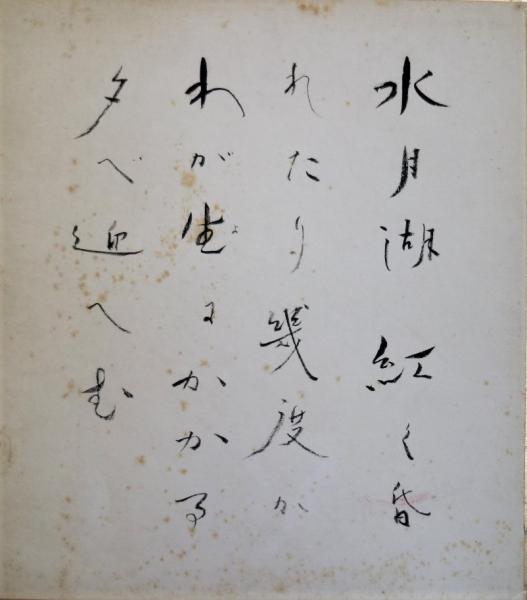 水月湖紅く昏
れたり幾度か
わが生よにかかる
夕べ迎へむ